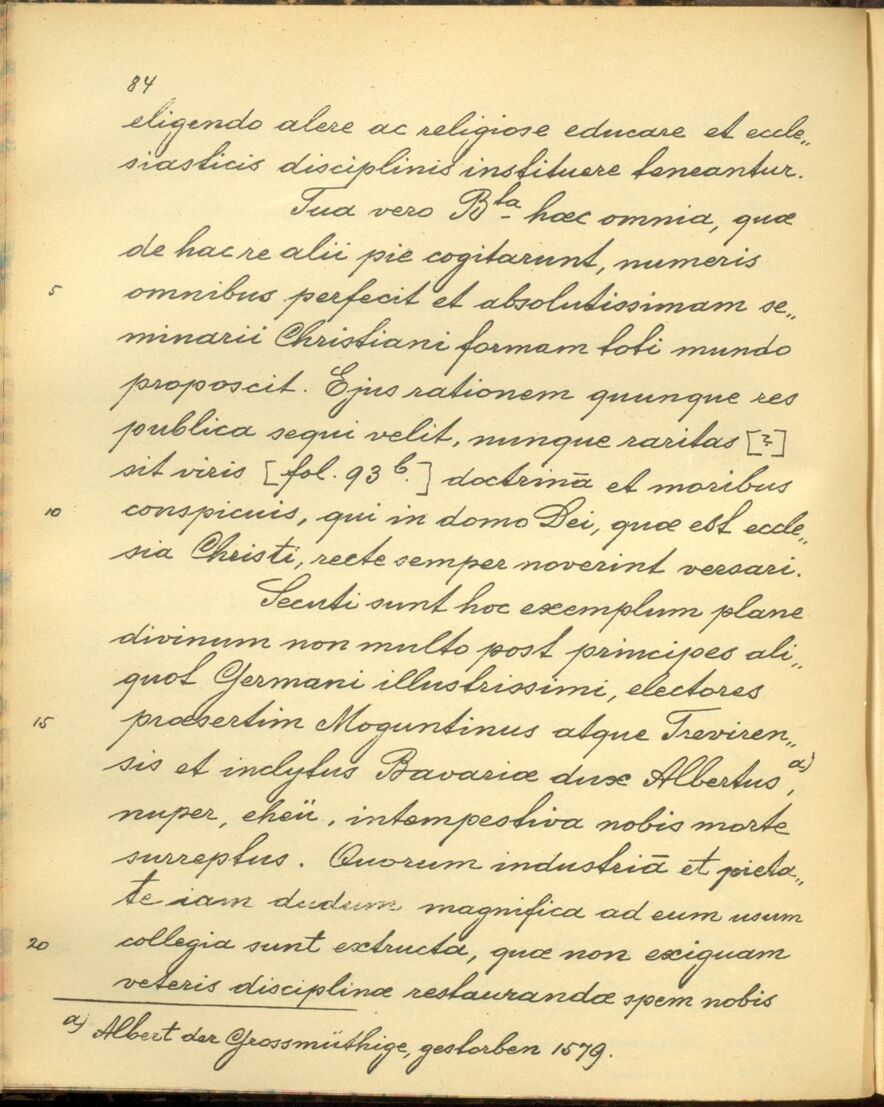 84
eligendo alere ac religiose educare et eccle„
siasticis disciplinis instituere teneantur.
Tua vero Bta hæc omnia, quæ
de hac re alii pie cogitarunt, numeris
5 omnibus perfecit et absolutissimam se„
minarii Christiani formam toti mundo
proposcit. Ejus rationem quunque res
publica sequi velit, nunque raritas [?]
sit viris [fol. 93 b.] doctrinā et moribus
10 conspicuis, qui in domo Dei, quæ est eccle„
sia Christi, recte semper noverint versari.
Secuti sunt hoc exemplum plane
divinum non multo post principes ali„
quot Germani illustrissimi, electores
15 præsertim Moguntinus atque Treviren„
sis et inclytus Bavariæ dux Albertus a),
nuper, eheü, intempestiva nobis morte
surreptus. Quorum industriā et pieta„
te iam dudum magnifica ad eum usum
20 collegia sunt extructa, quæ non exiguam
veteris disciplinæ restaurandæ spem nobis
a) Albert der Grossmüthige, gestorben 1579.